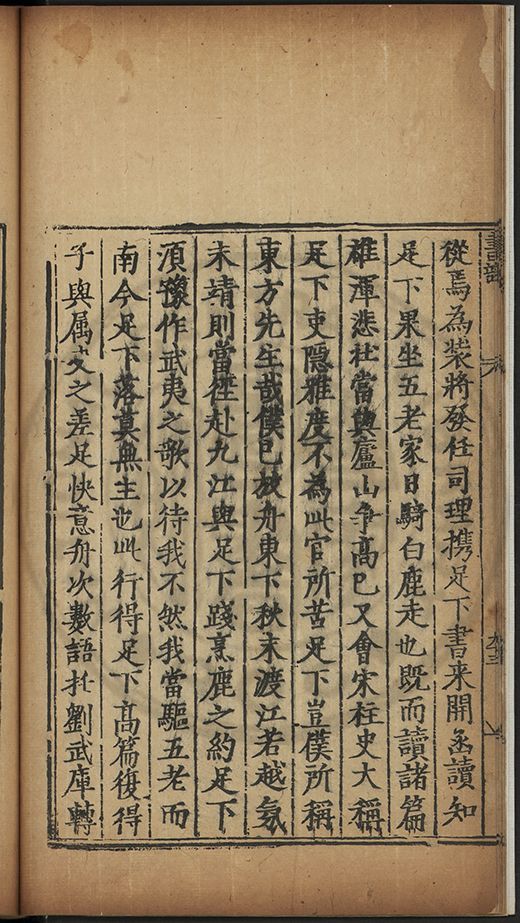 從焉為裝將發任司理携足下書来開函讀知
足下果坐五老家日騎白鹿走也既而讀諸篇
雄渾悲壮當與廬山争高已又會宋柱史大稱
足下吏隠雅度不為此官所苦足下豈僕所稱
東方先生哉僕已放舟東下秋末渡江若越氛
未靖則當徑赴九江與足下踐烹鹿之約足下
湏豫作武夷之歌以待我不然我當驅五老而
南今足下落莫無主也此行得足下髙篇復得
子與属文之差足快意舟次數語托劉武庫轉